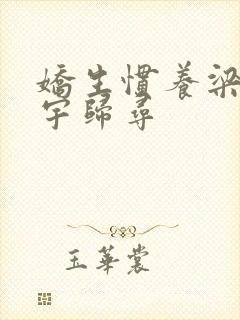 嬌生慣養梁
宇歸尋
玉華裳